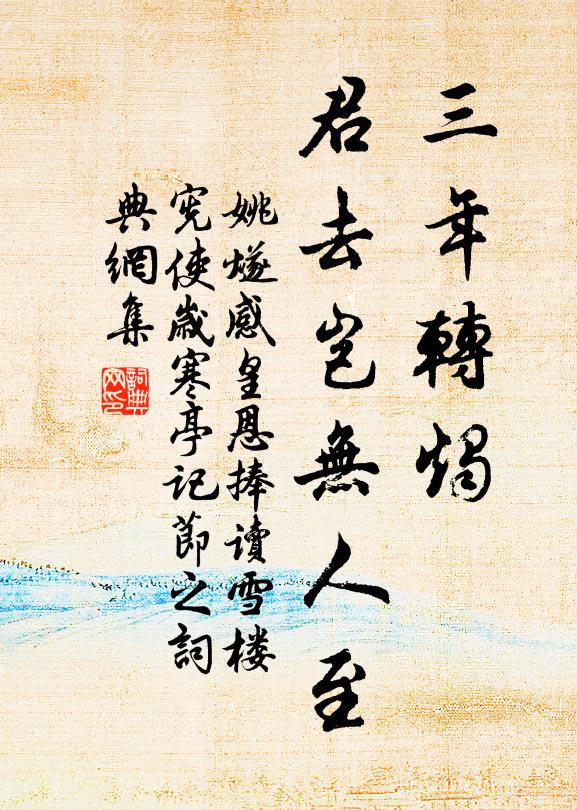 三年轉燭
君去豈無人至
姚燧感皇恩捧读雪楼
宪使歲寒亭记節之詞
典網集
詞典網印